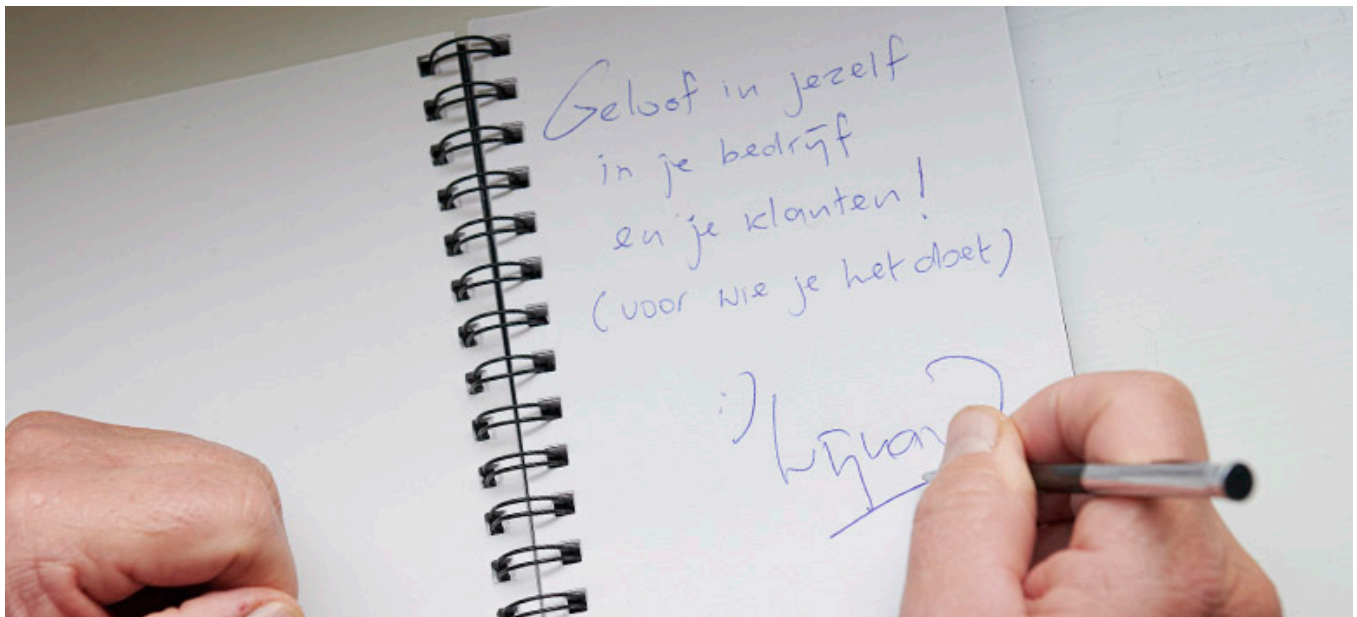 Geloof in jezelf
in je bedrijf
en je klanten!
(voor wie je het doet)
:)